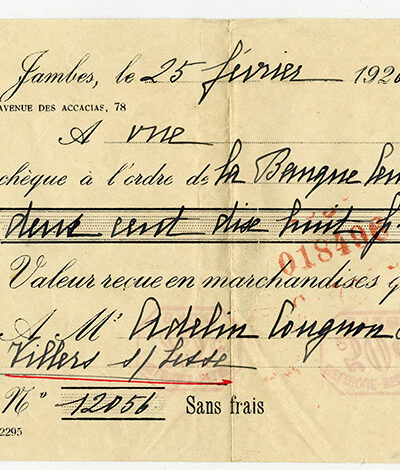 Jambes, le 25 février 192
AVENUE DES ACCACIAS, 78
A vue
chèque à l'ordre de la Banque
deux cent dix huit f
018496
Valeur reçue en marchandises q
A Mr Adelin Cougnon
Villers s/Lesse
N° 12056 Sans frais
2295